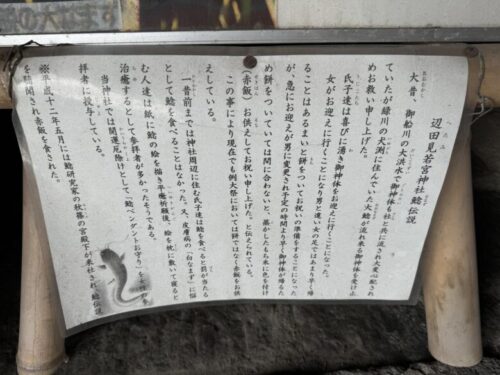 辺田見若宮神社鯰伝説
大昔、御船川の大洪水で御神体も社と共に流され大変心配され
ていたが緑川の犬渕に住んでいた大鯰が流れ来る御神体を受け止
めお救い申し上げた。
氏子達は喜びに湧き御神体をお迎えに行くことになった。
女がお迎えに行くことになり男と違い女の足ではあまり早く帰
ることはあるまいと餅をついてお祝いの準備をすることになった
が、急にお迎えが男に変更され予定の時間より早く御神体が帰るた
め餅をついていては間に合わないと、蒸かしたもち米に色を付け
(赤飯)お供えしてお祝い申し上げた。と伝えられている。
この事により現在でも例大祭においては餅ではなく赤飯をお供
えしている。
一昔前までは神社周辺に住む氏子達は鯰を食べると罰が当たる
として鯰を食べることはなかった。又、皮膚病の「白なまず」に悩
む人達は紙に鯰の絵を描き平癒祈願後、絵を枕に敷いて寝ると
治癒するとして参拝者が多かったそうである。
当神社では開運厄除けとして「鯰ペンダントお守り」を
拝者に投与している。
※平成十二年五月には鯰研究家の秋篠の宮殿下が来社され、鯰伝説
を聴聞され赤飯も食された。